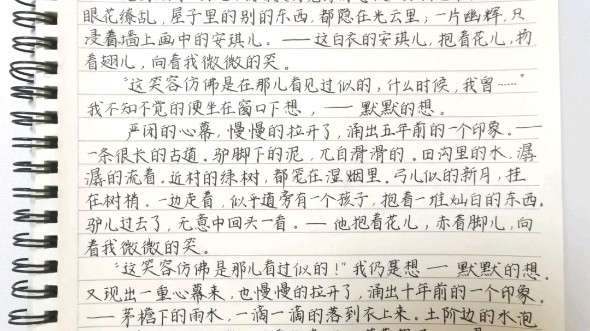 眼花缭乱,屋子里的别的东西,都隐在光云里;一片幽辉,只
浸着墙上画中的安琪儿。——这白衣的安琪儿,抱着花儿,扬
着翅儿,向着我微微的笑。
“这笑容仿佛是在那儿看见过似的,什么时候,我曾……”
我不知不觉的便坐在窗口下想,——默默的想。
严闭的心幕,慢慢的拉开了,涌出五年前的一个印象。——
一条很长的古道。驴脚下的泥,兀自滑滑的。田沟里的水,潺
潺的流着。近村的绿树,都笼在湿烟里。弓儿似的新月,挂
在树梢。一边走着,似乎道旁有一个孩子,抱着一堆灿白的东西。
驴儿过去了,无意中回头一看。——他抱着花儿,赤着脚儿,向
着我微微的笑。
“这笑容仿佛是那儿看过似的!”我仍是想——默默的想。
又现出一重心幕来,也慢慢的拉开了,涌出十年前的一个印象。
——茅檐下的雨水,一滴一滴的落到衣上来。土阶边的水泡